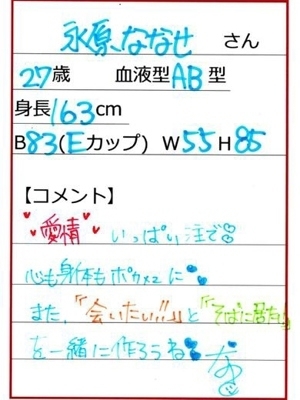 永原ななせ さん
27歳 血液型AB型
身長163cm
B83(Eカップ) W55H85
【コメント】
愛情 いっぱい注で
心も身体もポカポカに
また、『会いたい!!』と『そばに居たい』
を一緒に作ろうね